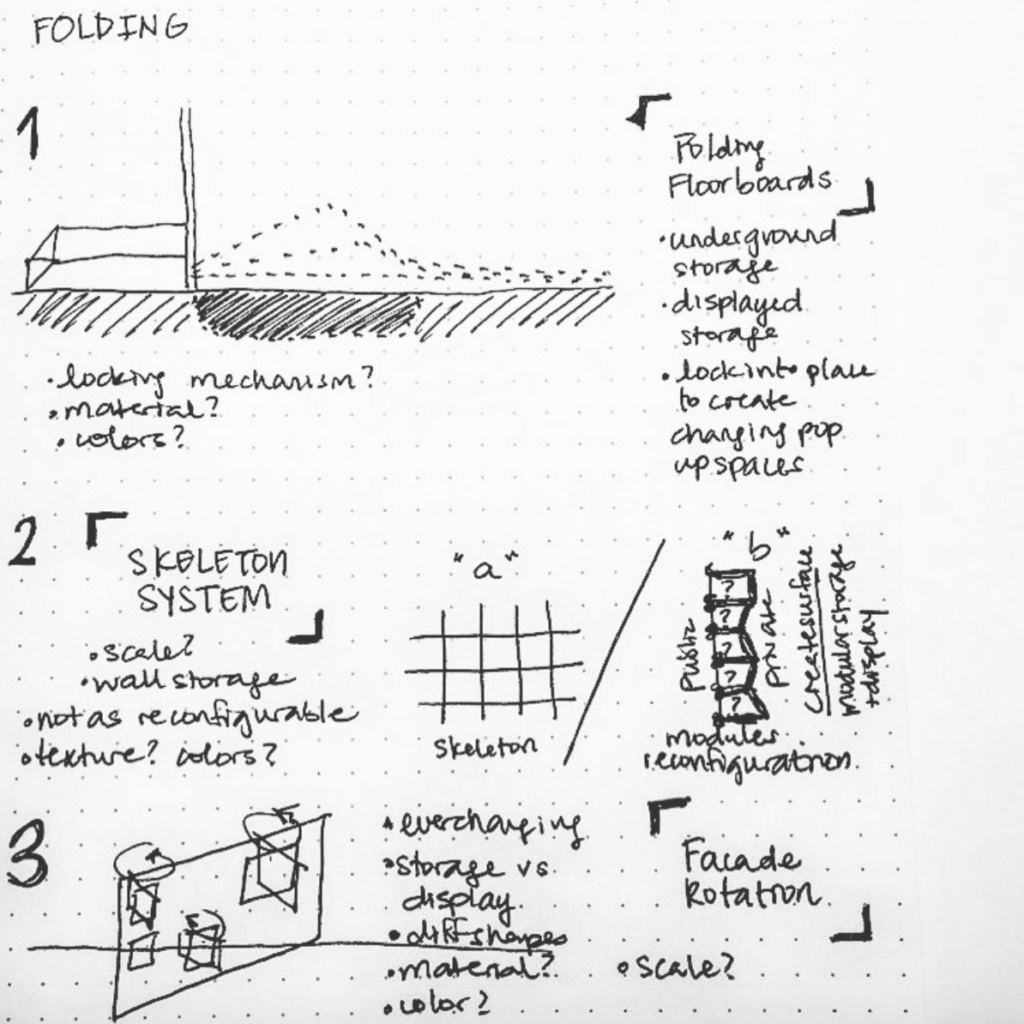 FOLDING
1
Folding
Floorboards
•underground
storage
•displayed
storage
•lock into place
to create
changing pop
up spaces
•locking mechanism?
•material?
•colors?
2
SKELETON
SYSTEM
•scale?
•wall storage
•not as reconfigurable
•texture? colors?
"a"
skeleton
"b"
?
?
?
?
?
public
private
create surface
modular storage
+display
modules
reconfiguration
3
•everchanging
•storage vs
display
•diff shapes
•material?
•color?
Facade
Rotation
•scale?